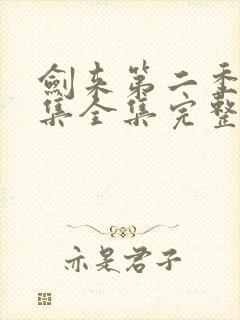 劍来第二季
集全集完整
亦是君子